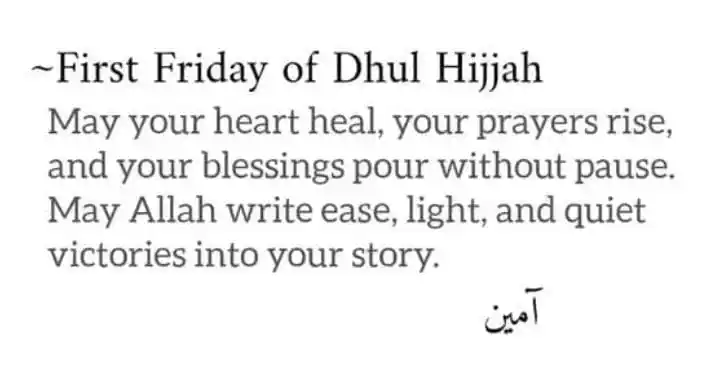 ~First Friday of Dhul Hijjah
May your heart heal, your prayers rise,
and your blessings pour without pause.
May Allah write ease, light, and quiet
victories into your story.
آمین